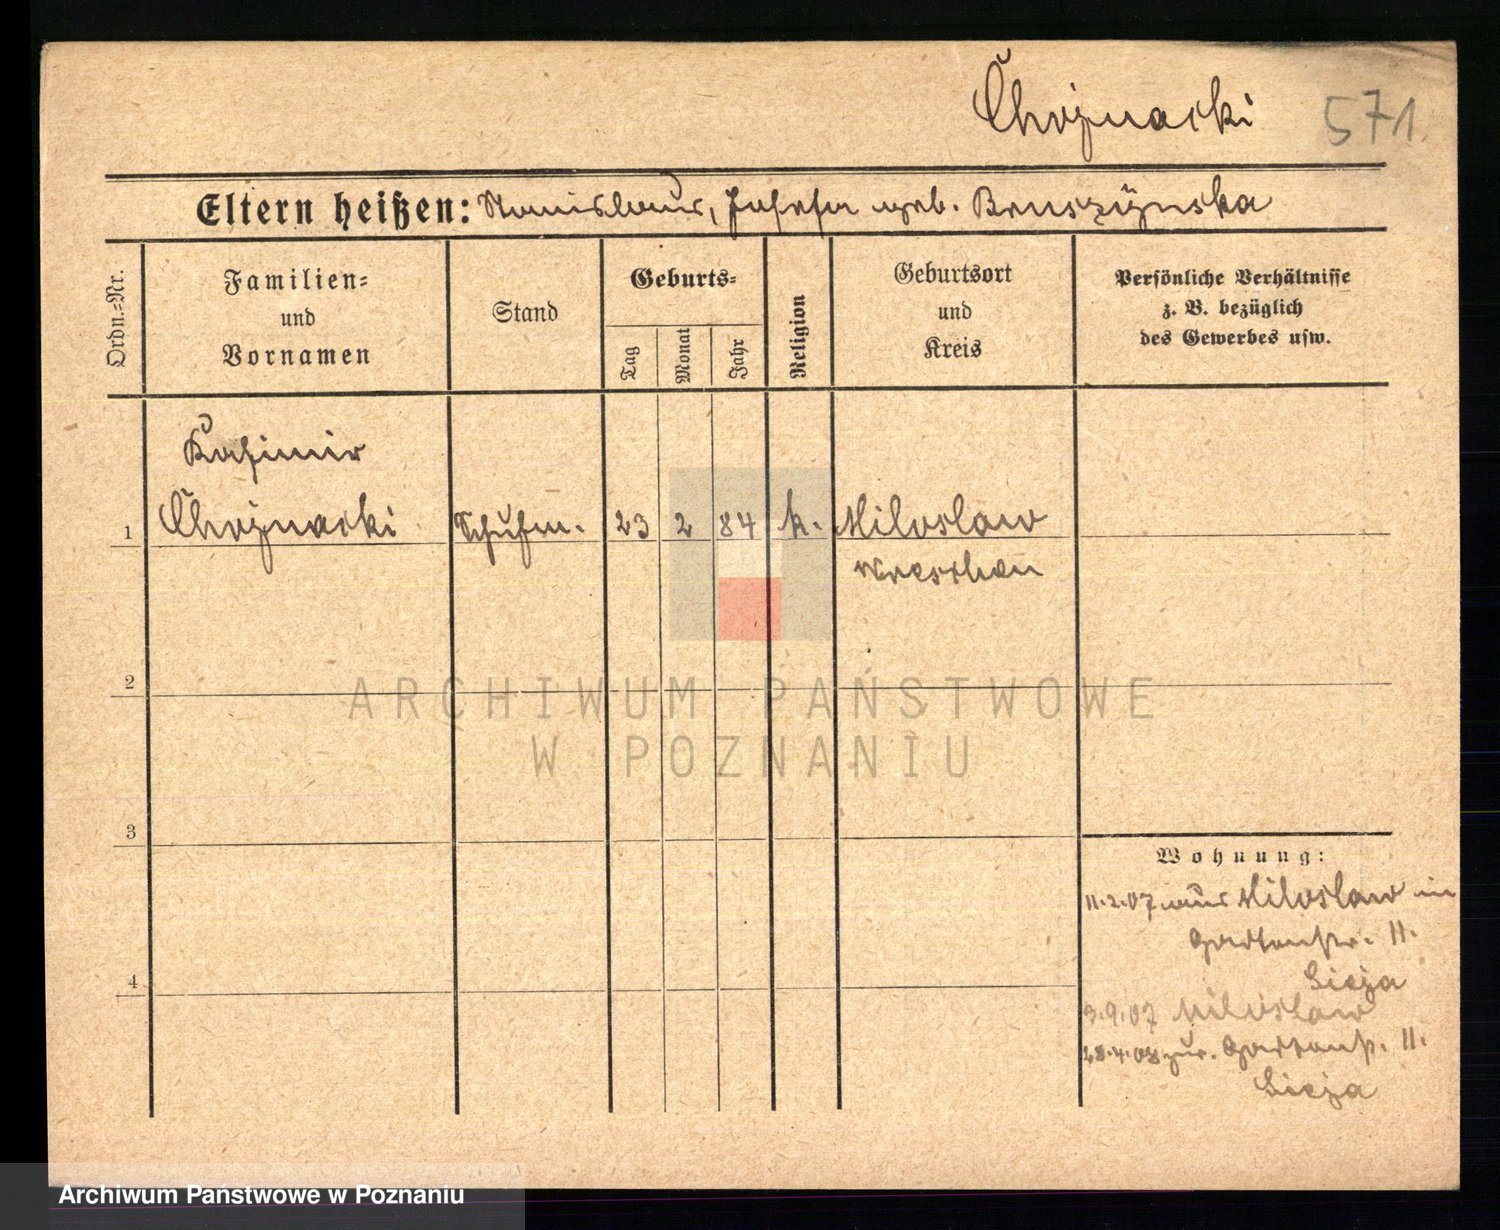 Chojnacki 571.
Eltern heißen: Stanislaus, Josefa geb. Bruszÿnska
Ordn.=Nr.
Familien=
und
Vornamen
Stand
Geburts=
Tag
Monat
Jahr
Religion
Geburtsort
und
Kreis
Persönliche Verhältnisse
z. B. bezüglich
des Gewerbes usw.
Kasimir
1 Chojnacki Schuhm. 23 2 84 k. Miloslaw
Wreschen
2
3
4
Wohnung:
11.2.07 aus Miloslaw in
Gartenstr. 11.
3.9.07 Miloslaw
28.4.08 zur. Gartenst. 11.
ARCHIWUM PAŃSTWOWE
W POZNANIU
Archiwum Państwowe w Poznaniu